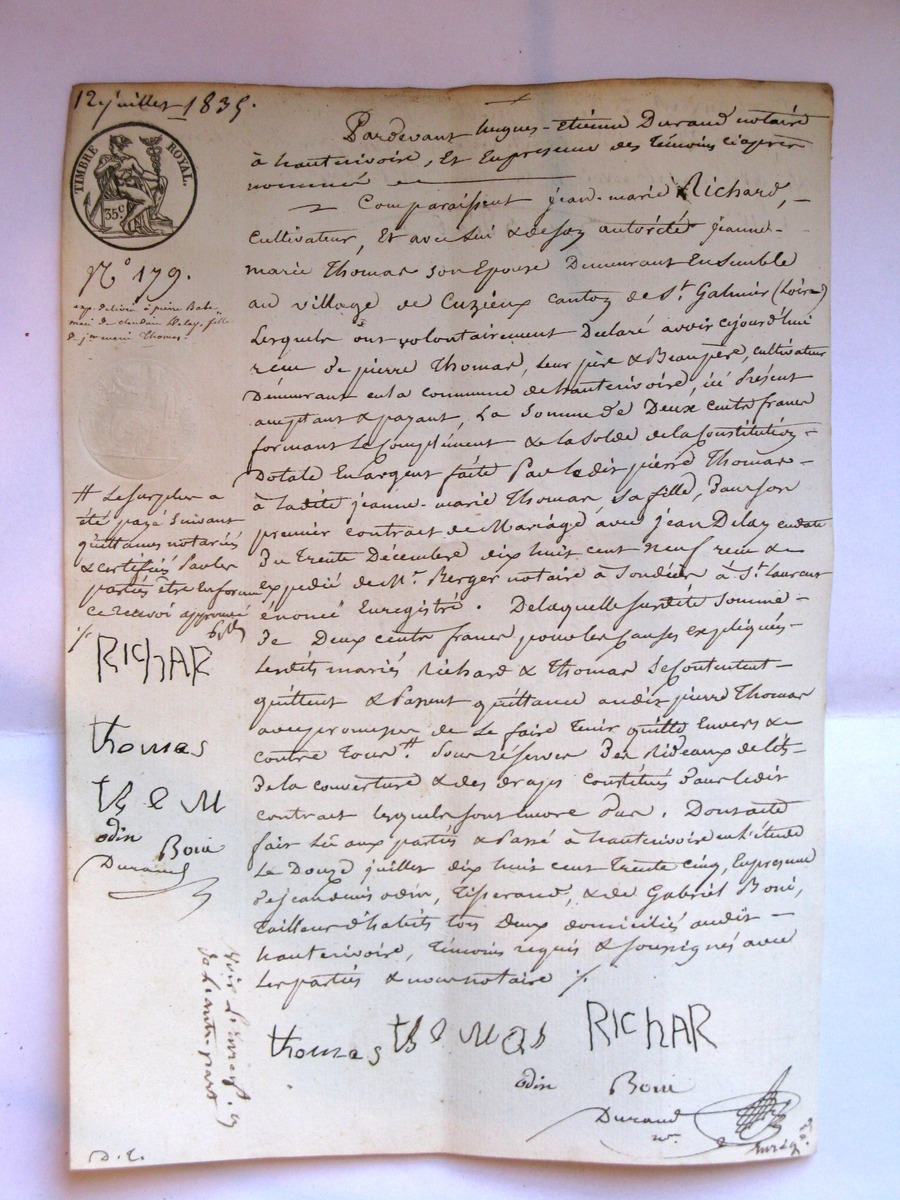 12 juillet 1835.
TIMBRE ROYAL.
35c
Pardevant hugues-Etiénne Durand notairé
à hauterivoire, Et Enpresence des Témoins ciaprès
nommés
Comparaissent jean-marié Richard,
Cultivateur, Et avec lui & desoy autorité jeanne-
marie Thomas son Epouse Demeurant Ensemble
au village de Cuzieux canton de St Galmier (Loire)
Lesquels ont volontairement Declaré avoir cejourd'hui
recu de pierre Thomas, leur père & Beaupère, cultivateur
Demeurant enla commune de hauterivoire, ici Présent
acceptant & payant, La Somme de Deux cents francs
formant Le Complément & la Solde de la Constitution
Dotale En argent faite Par ledit pierré Thomas
à ladite jeanne-marie Thomas Sa fille, Dans son
premier contract de Mariagé avec jean Delay endate
Du Trente Décembre dix huit cent neuf recu &
expédié de Me Berger notaire à à St Laurent
énoncé Enregistré. Delaquelle susdite somme
De Deux cents francs pour les Causes expliqués
Lesdits mariés Richard & Thomas Secontentent
quittent & Passent quittance audit pierre Thomas
avec promesse de Le faire Tenir quitte Envers &
contre Tous # Sous réserver Des Rideaux de lit
De la couverture & des draps constitués Dans ledit
contrat lesquels sont encore Dus. Dontacte
fait Lû aux partiés & Passé à hauterivoire en l'étude
Le Douze juillet dix huit cent Trente Cinq, Enpresence
De jean denis odin, Tisserand, & de Gabriel Boni,
Tailleur d'habits tous Deux domiciliés audit
hauterivoire, Témoins requis & soussignés avec
Les partiés & nous notaire
N° 179.
exp. delivrée à pierre
mari de claudine Delay, fille
de jne marie Thomas
# Le surplus a
été payé Suivant
quittances notariés
& certifiés Par les
partiés être
ce recevoir approuvé
RICHAR
thomas
th e M
odin
Boni
Durand
Voir
de l'autre part
thomas th e M as
RICHAR
odin
Boni
Durand
nre
D.E.